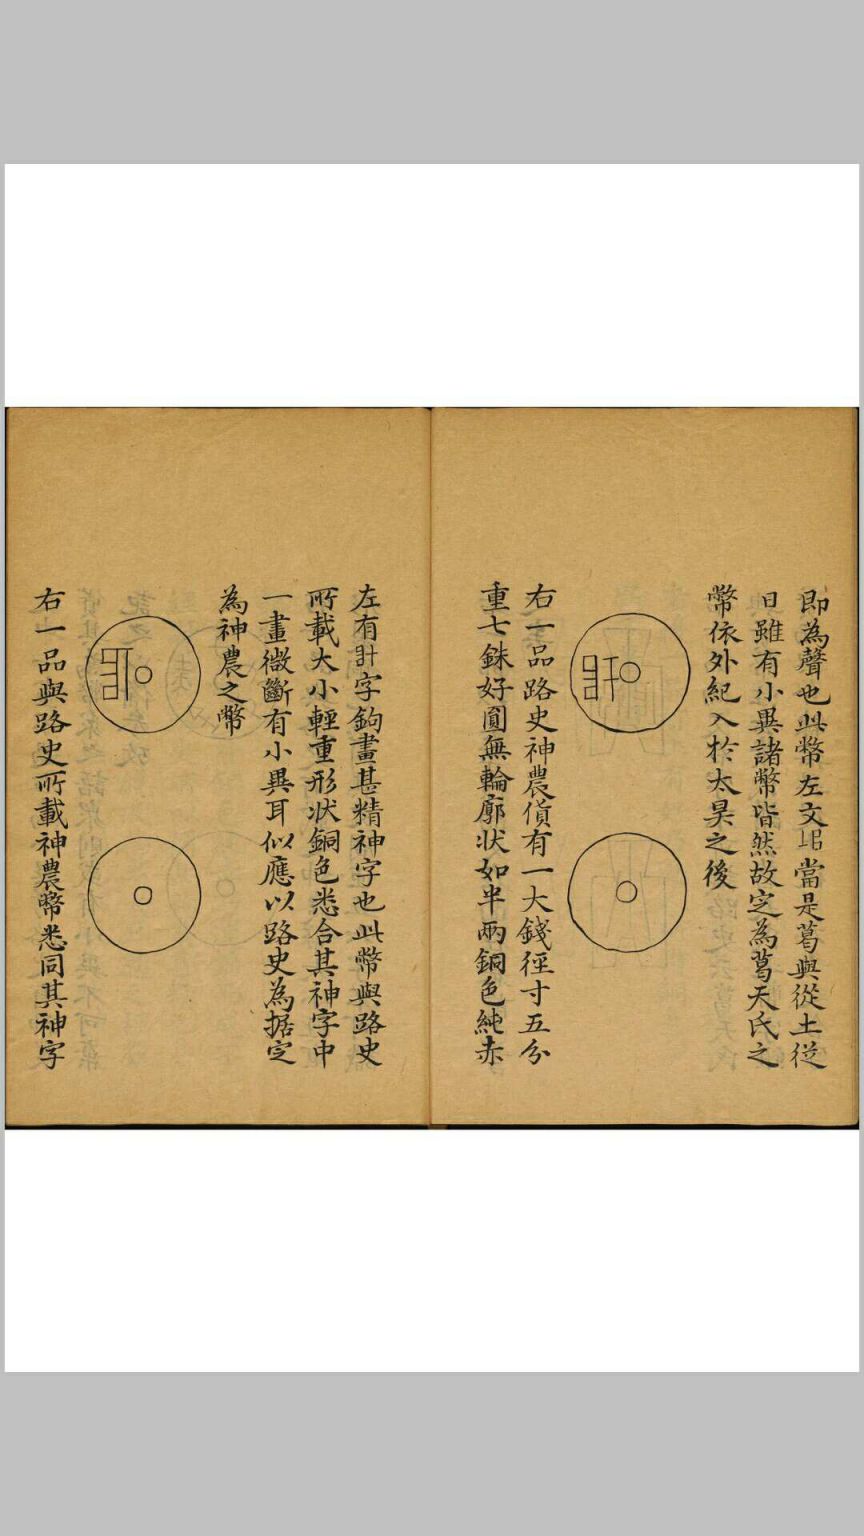 即為聲也此幣左文㠯當是葛與從土從
日雖有小異諸幣皆然故定為葛天氏之
幣依外紀入於太昊之後
右一品路史神農貨有一大錢徑寸五分
重七銖好圓無輪廓狀如半兩銅色純赤
左有字鉤畫甚精神字也此幣與路史
所載大小輕重形狀銅色悉合其神字中
一畫微斷有小異耳似應以路史為据定
為神農之幣
右一品與路史所載神農幣悉同其神字